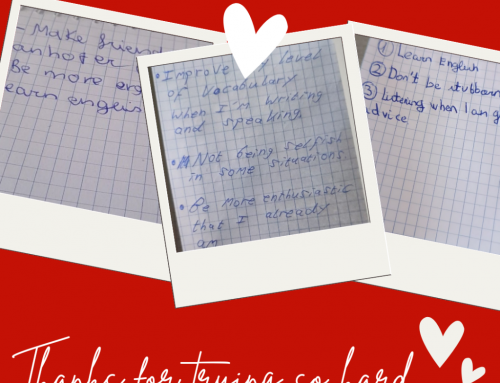 - Make friend
anhoter
Be more en
earn engels
• Improve level
of vocabulary
when I'm writing
and speaking
• Not being selfish
in some situations
• Be more enthusiastic
that I already
am
① Learn English
② Don't be stubborn
③ Listening when I am g
advice
Thanks for trying so hard